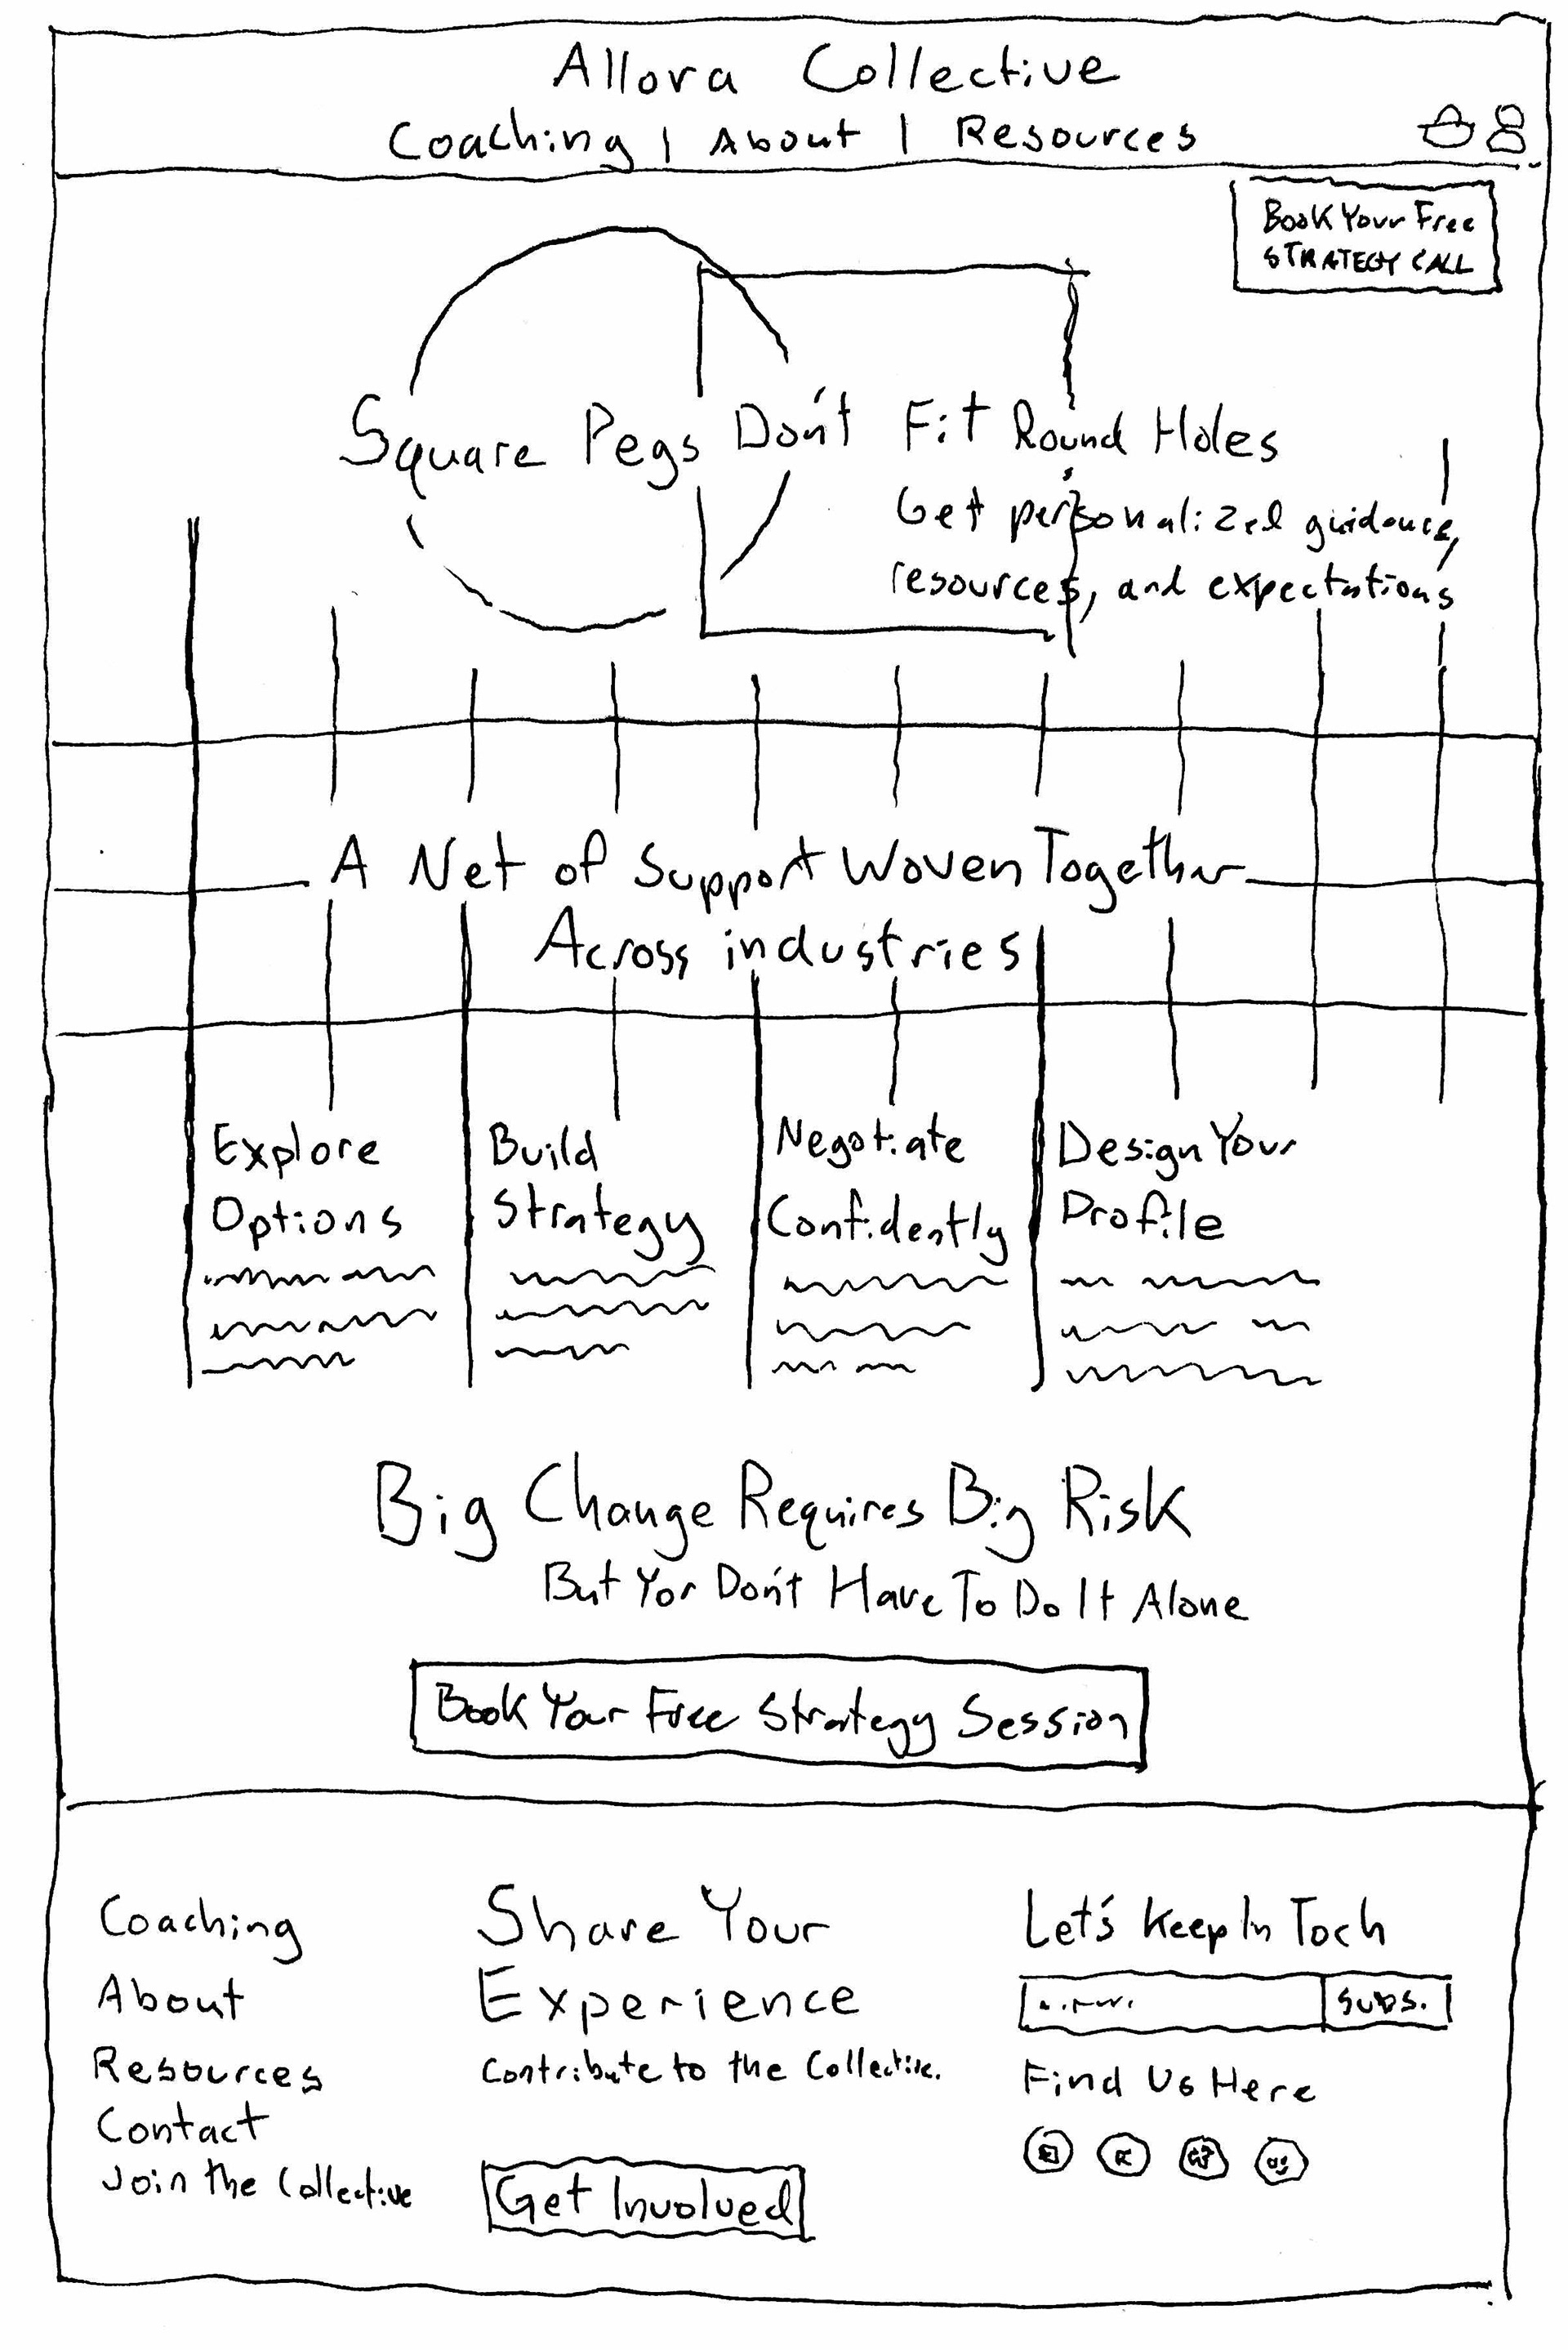 Allora Collective
Coaching | About | Resources
Book Your Free
STRATEGY CALL
Square Pegs Don't Fit Round Holes
Get personalized guidance,
resources, and expectations
A Net of Support Woven Together
Across industries
Explore
Options
Build
Strategy
Negotiate
Confidently
Design Your
Profile
Big Change Requires Big Risk
But Yor Don't Have To Do It Alone
Book Your Free Strategy Session
Coaching
About
Resources
Contact
Join the Collective
Share Your
Experience
Contribute to the Collective.
Get Involved
Let's Keep In Toch
SUBS.
Find Us Here